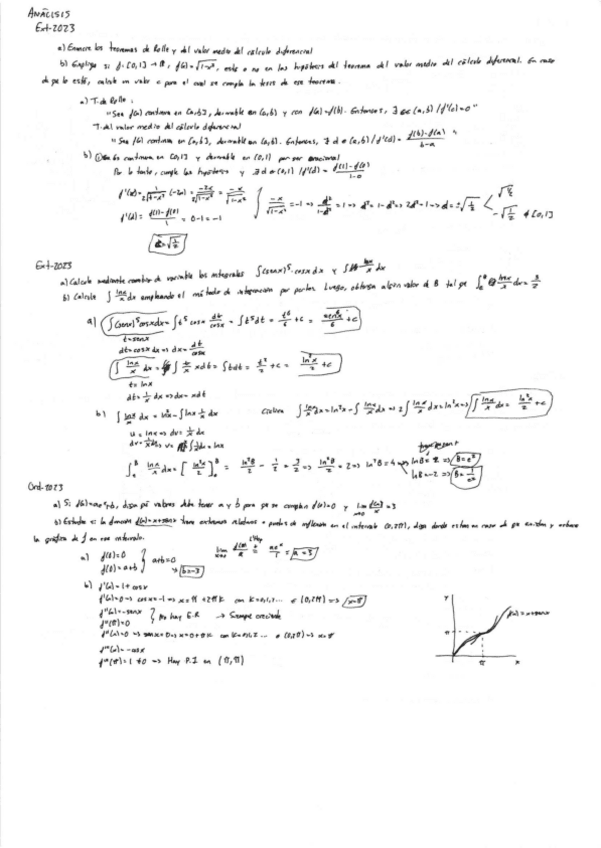 ANÁLISIS
Ext-2023
a) Enuncie los teoremas de Rolle y del valor medio del cálculo diferencial
b) Explique si f: [0,1] → ℝ, f(x)=√(1-x²), está o no en las hipótesis del teorema del valor medio del cálculo diferencial. En caso
de que lo esté, calcule un valor para el cual se cumpla la tesis de ese teorema.
a) T. de Rolle:
"Sea f(x) continua en [a,b], derivable en (a,b) y con f(a)=f(b). Entonces, ∃ c∈(a,b) / f'(c)=0"
T. del valor medio del cálculo diferencial
"Sea f(x) continua en [a,b], derivable en (a,b). Entonces, ∃ d∈(a,b) / f'(d)= (f(b)-f(a))/(b-a)"
b) Es continua en [0,1] y derivable en (0,1) por ser
Por lo tanto, cumple las hipótesis y ∃ d∈(0,1) / f'(d)= (f(1)-f(0))/(1-0)
f'(x)= 1/(2√(1-x²)) (-2x) = -2x/(2√(1-x²)) = -x/√(1-x²)
-x/√(1-x²) = -1 => d²/(1-d²) = 1 => d²=1-d² => 2d²=1 => d=±√(1/2) < √(1/2)
-√(1/2) ∉ [0,1]
f'(d)= (f(1)-f(0))/1 = 0-1=-1
d=√(1/2)
Ext-2023
a) Calcule mediante cambio de variable las integrales ∫(senx)⁵·cosx dx y ∫ lnx/x dx
b) Calcule ∫ lnx/x dx empleando el método de integración por partes. Luego, obtenga algún valor de B tal que ∫ₑᴮ lnx/x dx = 3/2
a) ∫(senx)⁵cosxdx = ∫t⁵ cosx dt/cosx = ∫t⁵dt = t⁶/6 + c = sen⁶x/6 + c
t=senx
dt=cosx dx => dx= dt/cosx
∫ lnx/x dx = ∫ t/x xdt = ∫tdt = t²/2 + c = ln²x/2 + c
t=lnx
dt= 1/x dx => dx=xdt
b) ∫ lnx/x dx = ln²x - ∫lnx 1/x dx
∫ lnx/x dx = ln²x - ∫ lnx/x dx => 2∫ lnx/x dx = ln²x => ∫ lnx/x dx = ln²x/2 + c
∫ₑᴮ lnx/x dx = [ln²x/2]ₑᴮ = ln²B/2 - 1/2 = 3/2 => ln²B/2 = 2 => ln²B=4 => lnB=2 => B=e²
lnB=-2 => B=1/e²
Ord-2023
a) Si f(x)=aeˣ+b, diga qué valores debe tener a y b para que se cumplan f(0)=0 y lim x→0 f(x)/x = 3
b) Estudie si la función f(x)=x+senx tiene extremos relativos o puntos de inflexión en el intervalo (0,2π), diga donde están en caso de que existan y esboce
la gráfica de f en ese intervalo.
a) f(0)=0
f(0)=a+b
a+b=0
=> b=-3
lim x→0 f(x)/x = aeˣ/1 = a=3
b) f'(x)=1+cosx
f'(x)=0 => cosx=-1 => x=π+2πk con k=0,1,2... ∈ (0,2π) => x=π
f''(x)=-senx
f''(π)=0
No hay E.R → Siempre creciente
f''(x)=0 => senx=0 => x=0+πk con k=0,1,2... ∈ (0,2π) => x=π
f'''(x)=-cosx
f'''(π)=1≠0 => Hay P.I en (π,π)
y
f(x)=x+senx
π
π
x